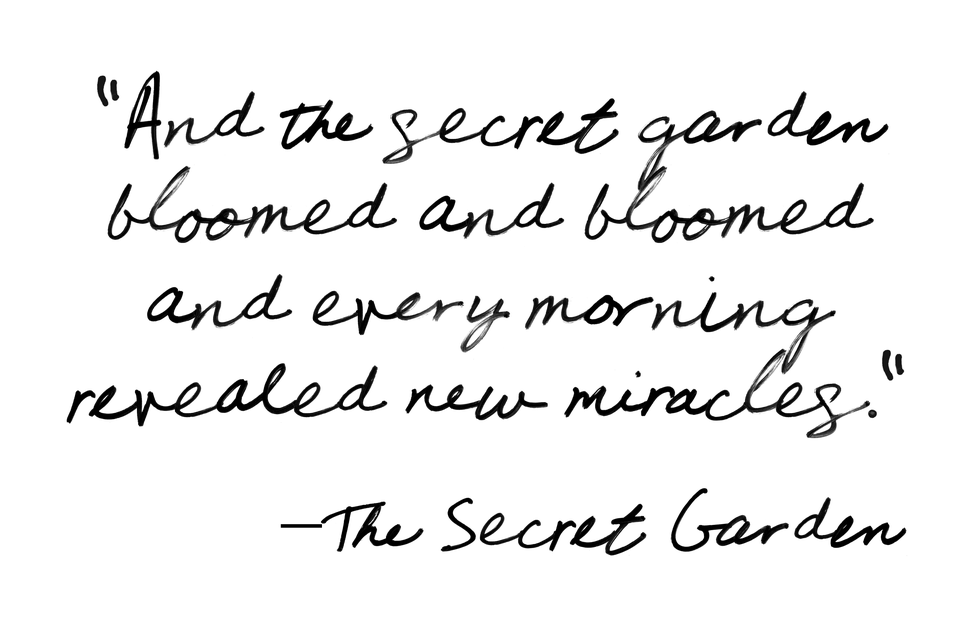 "And the secret garden
bloomed and bloomed
and every morning
revealed new miracles."
—The Secret Garden